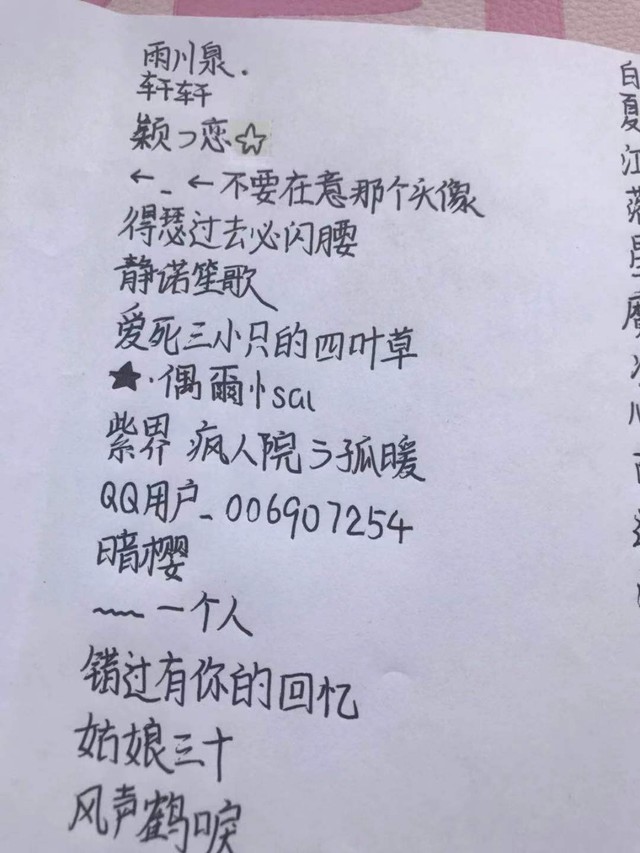 雨川泉.
轩轩
颖つ恋☆
←_←不要在意那个头像
得瑟过去必闪腰
静诺笙歌
爱死三小只的四叶草
★·偶爾忄sai
紫界 疯人院う孤暖
QQ用户_006907254
暗樱
~~一个人
错过有你的回忆
姑娘三十
风声鹤唳
夏
江
落
魔